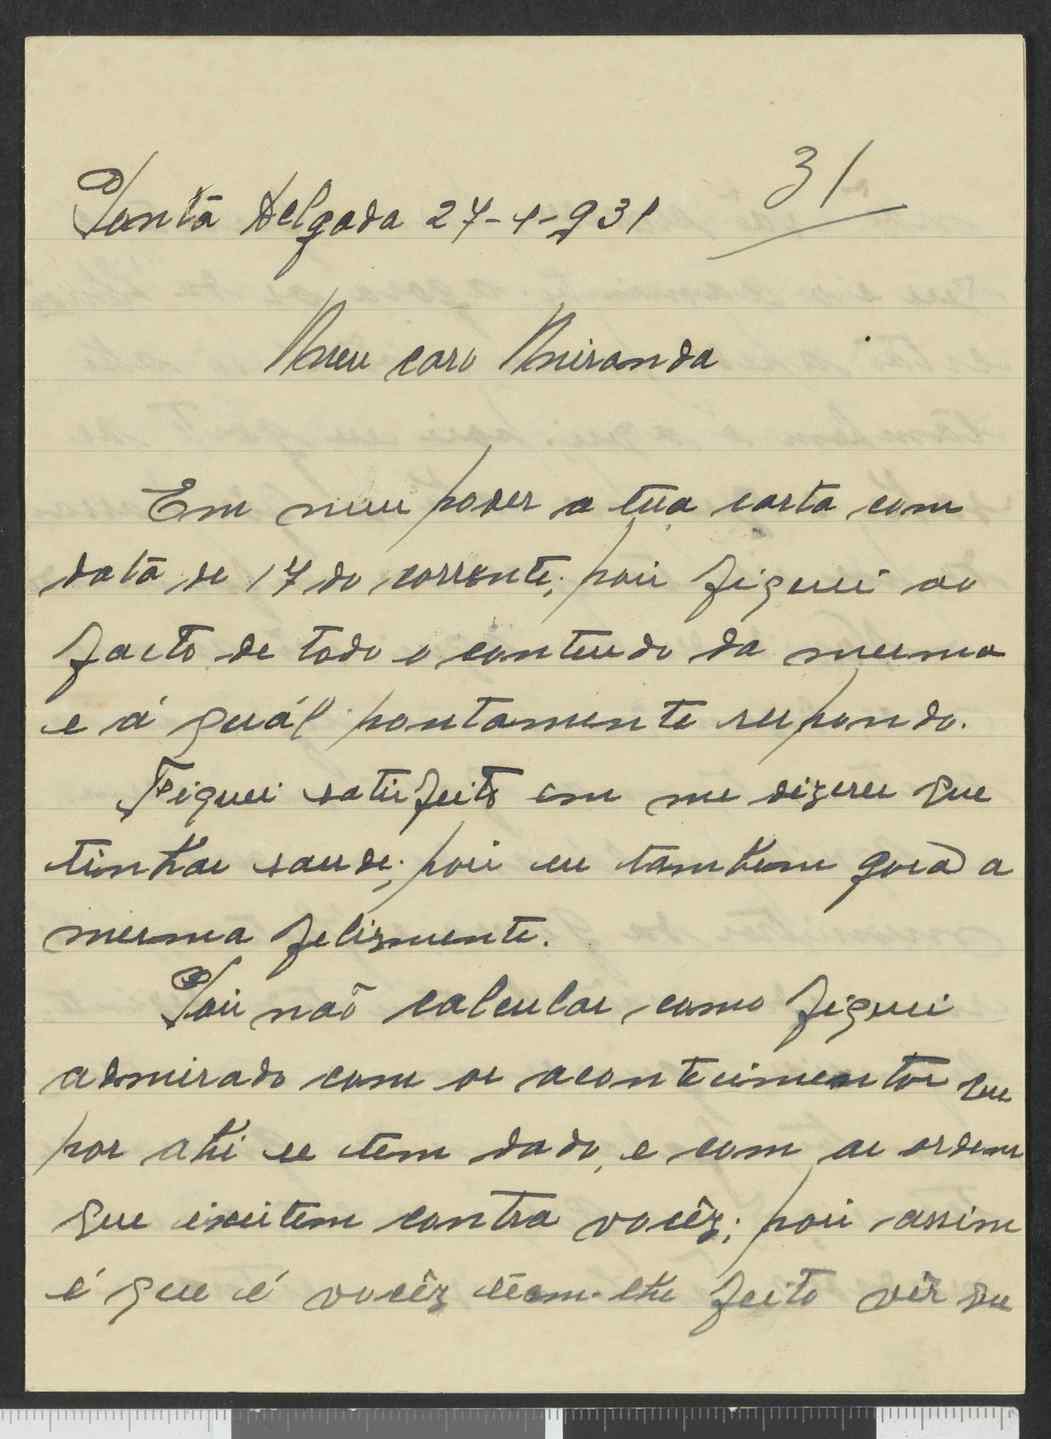 31
Ponta Delgada 27-4-931
Meu caro Miranda
Em meu poder a tua carta com
data de 17 do corrente; pois fiquei ao
facto de todo o conteudo da mesma
e á quál pontamente respondo.
Fiquei satisfeito em me dizeres que
tinhas saude; pois eu tambem goso a
mesma felismente.
Pois não calculas como fiquei
admirado com os acontecimentos que
por ahi se tem dado, e com as ordens
que existem contra vocêz; pois assim
é que é vocêz têem-lhe feito vêr que